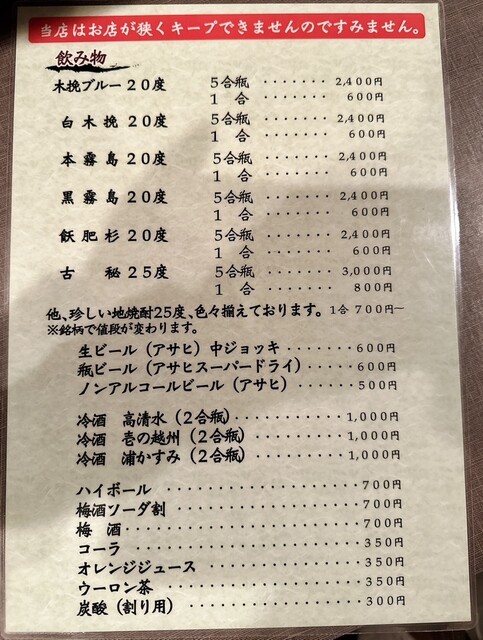 当店はお店が狭くキープできませんのですみません。
飲み物
木挽ブルー20度 5合瓶 ・・・・・・・ 2,400円
1 合 ・・・・・・・ 600円
白木挽20度 5合瓶 ・・・・・・・ 2,400円
1 合 ・・・・・・・ 600円
本霧島20度 5合瓶 ・・・・・・・ 2,400円
1 合 ・・・・・・・ 600円
黒霧島20度 5合瓶 ・・・・・・・ 2,400円
1 合 ・・・・・・・ 600円
飫肥杉20度 5合瓶 ・・・・・・・ 2,400円
1 合 ・・・・・・・ 600円
古 秘25度 5合瓶 ・・・・・・・ 3,000円
1 合 ・・・・・・・ 800円
他、珍しい地焼酎25度、色々揃えております。1合 700円~
※銘柄で値段が変わります。
生ビール(アサヒ)中ジョッキ ・・・・・・・600円
瓶ビール(アサヒスーパードライ)・・・・・600円
ノンアルコールビール(アサヒ)・・・・・・500円
冷酒 高清水(2合瓶)・・・・・・・・・・1,000円
冷酒 壱の越州(2合瓶)・・・・・・・・・1,000円
冷酒 浦かすみ(2合瓶)・・・・・・・・・1,000円
ハイボール ・・・・・・・・・・・・・・・700円
梅酒ソーダ割 ・・・・・・・・・・・・・・700円
梅 酒・・・・・・・・・・・・・・・・・・700円
コーラ ・・・・・・・・・・・・・・・・・350円
オレンジジュース ・・・・・・・・・・・・350円
ウーロン茶 ・・・・・・・・・・・・・・・350円
炭酸(割り用) ・・・・・・・・・・・・・300円